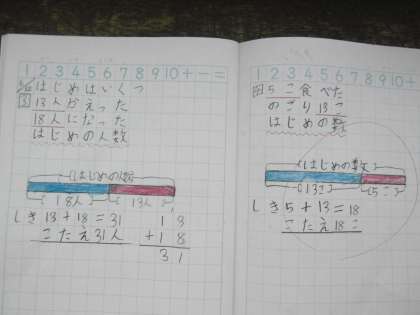 1 2 3 4 5 6 7 8 9 10 + - =
はじめはいくつ
3 13人かえった
18人になった
はじめの人数
はじめの数
18人 13人
しき 13+18=31
こたえ 31人
1 3
+1 8
3 1
1 2 3 4 5 6 7 8 9 10 + - =
5こ食べた
のこり13こ
はじめの数
はじめの数
13こ 5こ
しき 5+13=18
こたえ 18こ